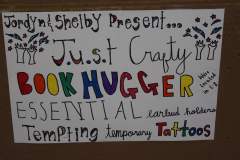 Jordyn & Shelby Present...
J.u.s.t Crafty
BOOK HUGGER
ESSENTIAL earbud holders
Tempting temporary Tattoos